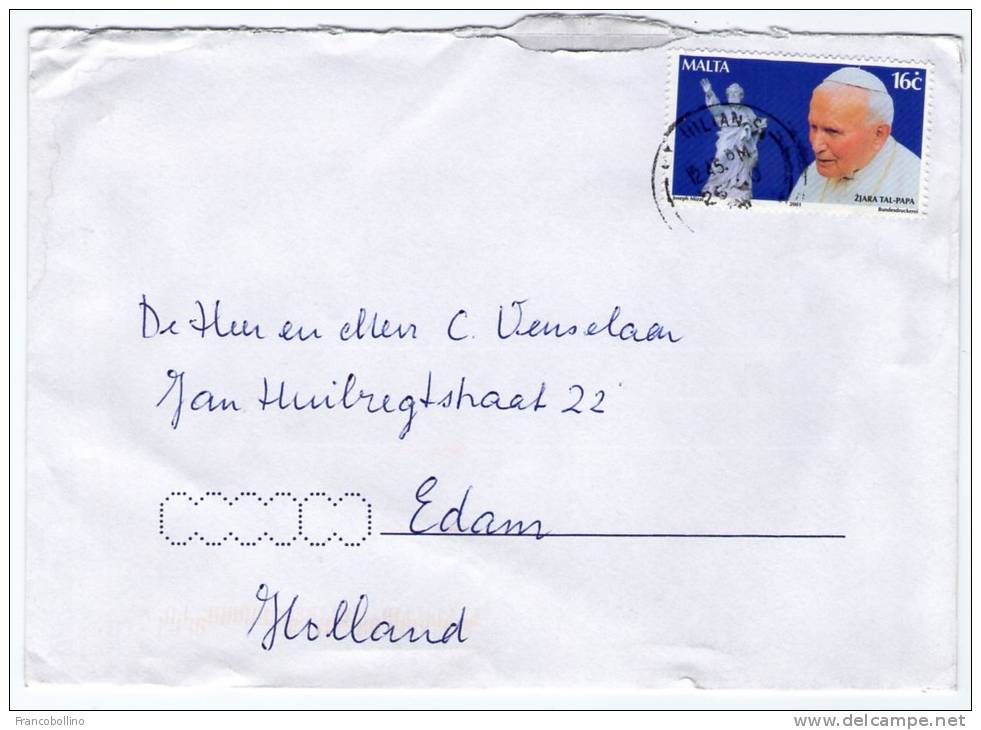 MALTA 16ċ
ŻJARA TAL-PAPA
2001
Bundesdruckerei
De Heer en Mevr C. Venselaar
Jan Huibregtstraat 22
Edam
Holland
Francobollino
www.delcampe.net